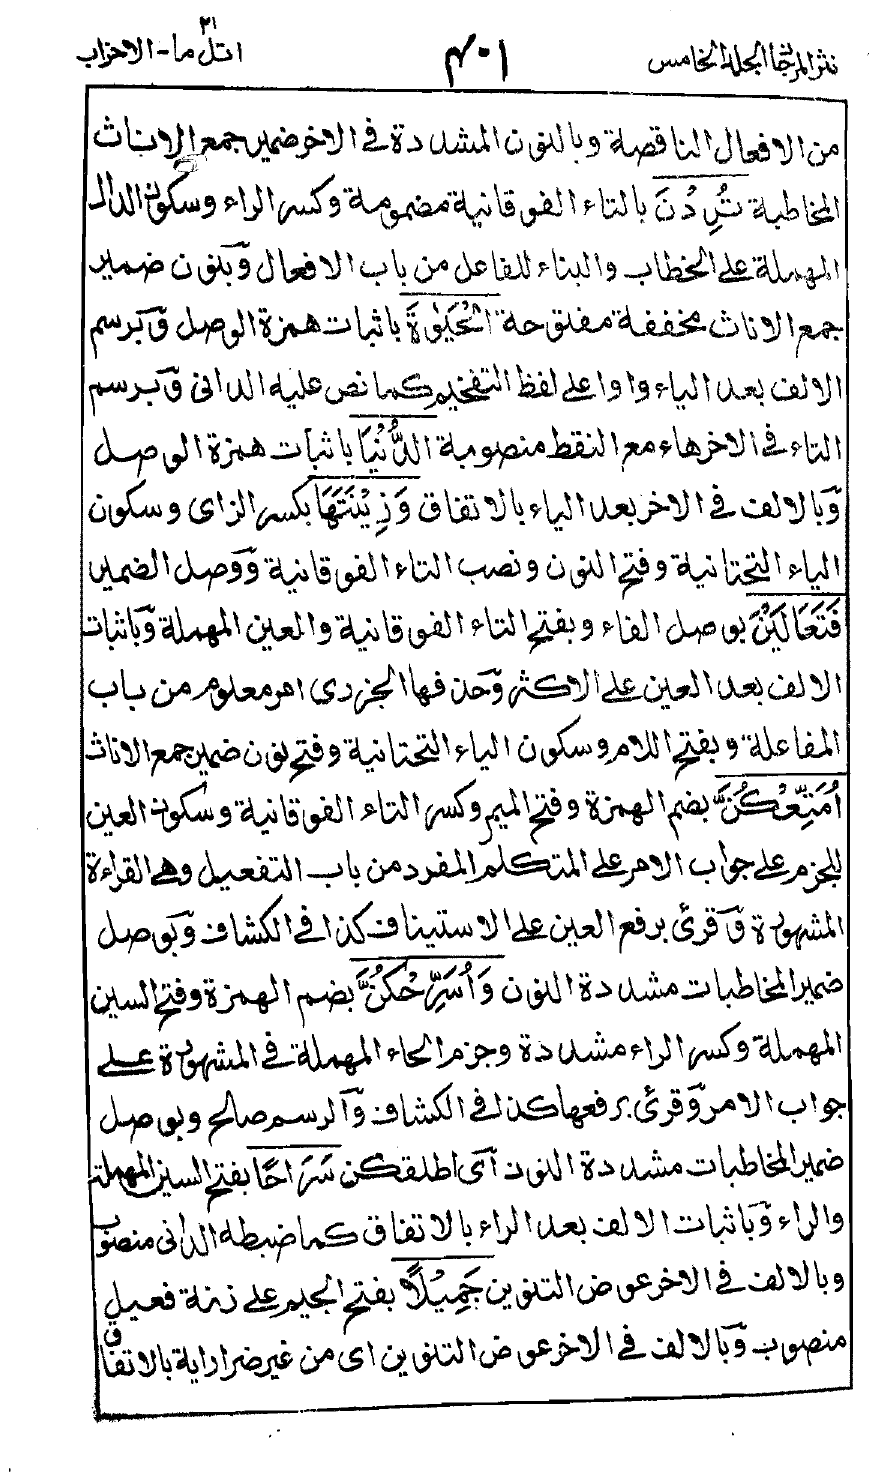 نثر المرجان المجلد الخامس
٤٠١
اتل ما - الاحزاب
٢١
من الافعال الناقصة وبالنون المشددة فى الاخر ضمير جمع الاناث
المخاطبة تُرِدْنَ بالتاء الفوقانية مضمومة وكسر الراء وسكون الدال
المهملة على الخطاب والبناء للفاعل من باب الافعال وبنون ضمير
جمع الاناث مخففة مفتوحة الْحَيٰوةَ باثبات همزة الوصل وبرسم
الالف بعد الياء واوا على لفظ التفخيم كما نص عليه الدانى وبرسم
التاء فى الاخر هاء مع النقط منصوبة الدُّنْيَا باثبات همزة الوصل
وبالالف فى الاخر بعد الياء بالاتفاق وَزِيْنَتَهَا بكسر الزاى وسكون
الياء التحتانية وفتح النون ونصب التاء الفوقانية ووصل الضمير
فَتَعَالَيْنَ بوصل الفاء وبفتح التاء الفوقانية والعين المهملة وباثبات
الالف بعد العين على الاكثر وحذفها الجزرى امر معلوم من باب
المفاعلة وبفتح اللام وسكون الياء التحتانية وفتح نون ضمير جمع الاناث
اُمَتِّعْكُنَّ بضم الهمزة وفتح الميم وكسر التاء الفوقانية وسكون العين
للجزم على جواب الامر على المتكلم المفرد من باب التفعيل وهى القراءة
المشهورة وقرئ برفع العين على الاستيناف كذا فى الكشاف وبوصل
ضمير المخاطبات مشددة النون وَاُسَرِّحْكُنَّ بضم الهمزة وفتح السين
المهملة وكسر الراء مشددة وجزم الحاء المهملة فى المشهورة على
جواب الامر وقرئ برفعها كذا فى الكشاف والرسم صالح وبوصل
ضمير المخاطبات مشددة النون اى اطلقكن سَرَاحًا بفتح السين المهملة
والراء وباثبات الالف بعد الراء بالاتفاق كما ضبطه الدانى منصوب
وبالالف فى الاخر عوض التنوين جَمِيْلًا بفتح الجيم على زنة فعيل
منصوب وبالالف فى الاخر عوض التنوين اى من غير ضرار اية بالاتفاق